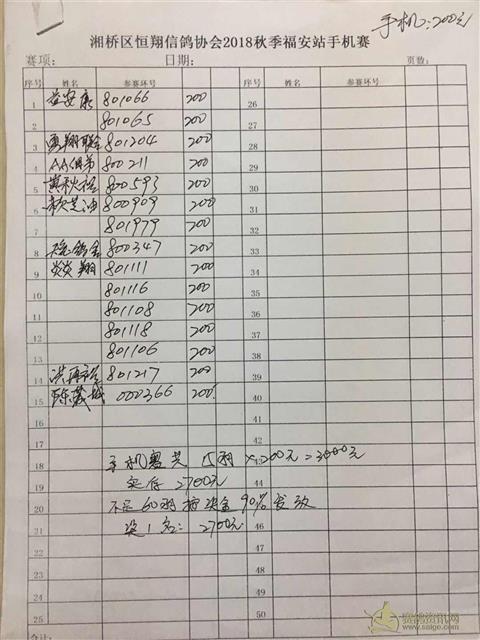 手机:200元
湘桥区恒翔信鸽协会2018秋季福安站手机赛
赛项: 日期: 页数:
序号 姓名 参赛环号 序号 姓名 参赛环号
1 益安康 801066 200 26
2 801065 200 27
3 勇翔联合 801204 200 28
4 AA兄弟 800211 200 29
5 黄秋松 800593 200 30
6 800909 200 31
7 801979 200 32
8 800347 200 33
9 炎炎翔 801111 200 34
10 801116 200 35
11 801108 200 36
12 801118 200 37
13 801106 200 38
14 801217 200 39
15 000366 200 40
18 手机赛共15羽×200元=3000元
19 实存2700元 44
20 不足60羽按奖金90%发放 45
21 奖1名:2700元 46
22 47
23 48
24 49
25 50
合计:
赛鸽资讯网
www.saige.com